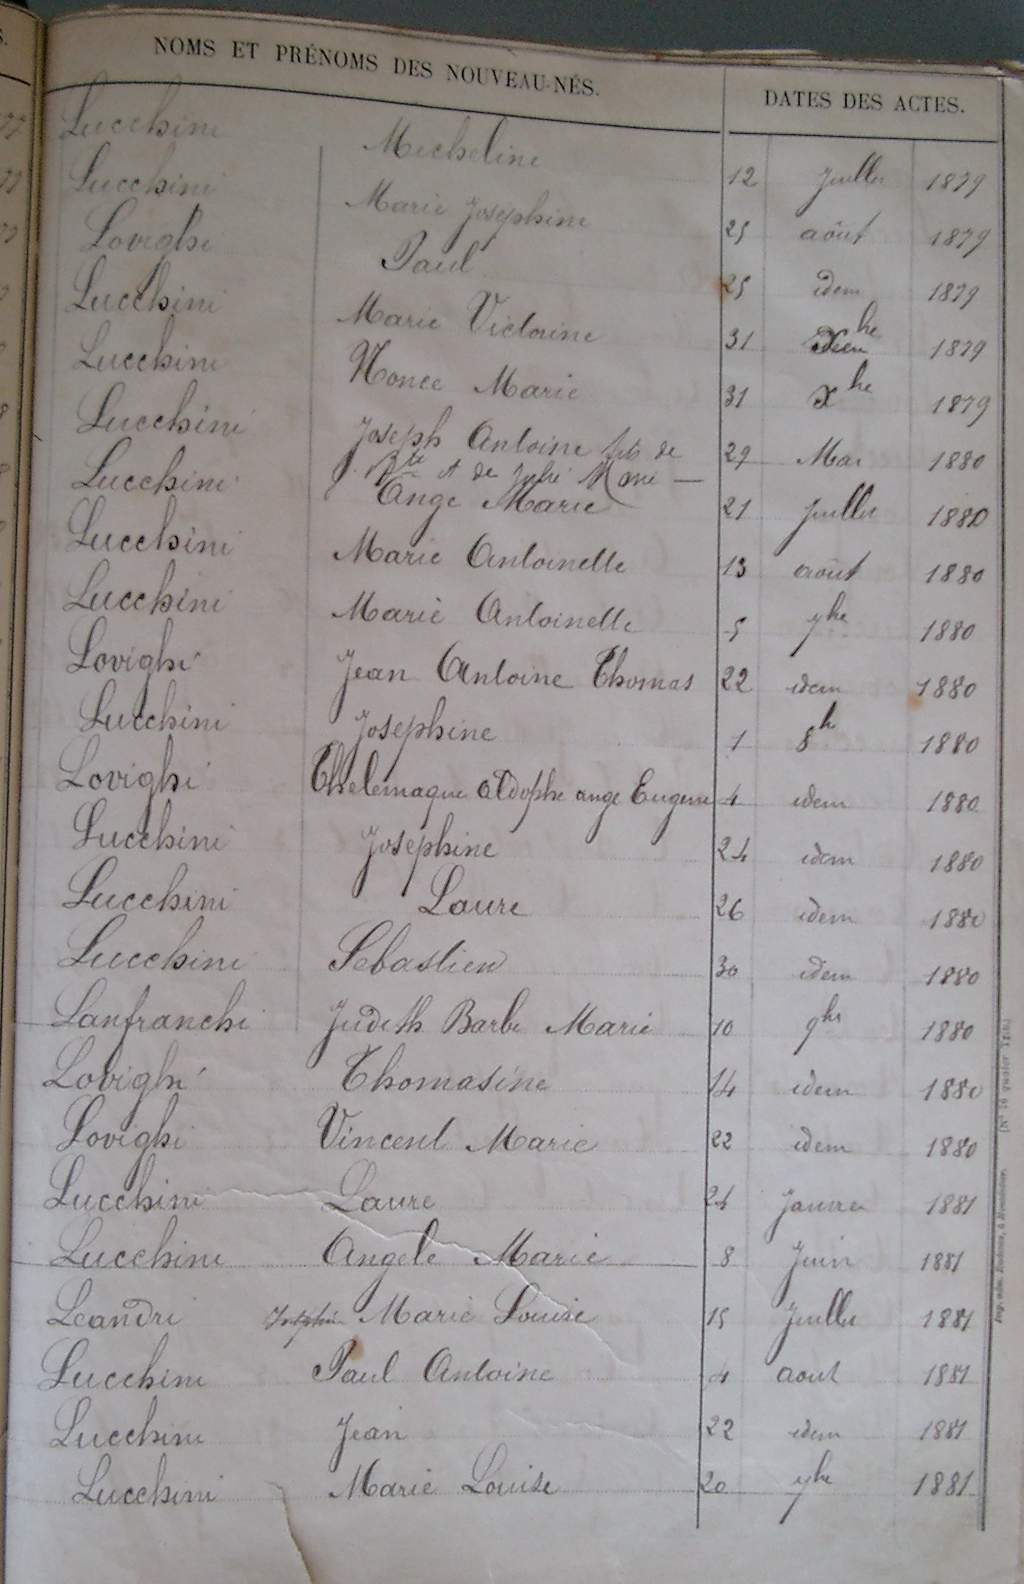 NOMS ET PRÉNOMS DES NOUVEAU-NÉS. DATES DES ACTES.
Lucchini Micheline 12 Juillet 1879
Lucchini Marie Joséphine 25 août 1879
Lovighi Paul 25 idem 1879
Lucchini Marie Victorine 31 1879
Lucchini Nonce Marie 31 Xbre 1879
Lucchini Joseph Antoine fils de 29 Mai 1880
et de Julie Marie —
Lucchini Ange Marie 21 Juillet 1880
Lucchini Marie Antoinette 13 août 1880
Lucchini Marie Antoinette 5 7bre 1880
Lovighi Jean Antoine Thomas 22 idem 1880
Lucchini Joséphine 1 8b 1880
Lovighi Thelemaque Aldophe ange Eugene 4 idem 1880
Lucchini Joséphine 24 idem 1880
Lucchini Laure 26 idem 1880
Lucchini Sebastien 30 idem 1880
Lanfranchi Judith Barbe Marie 10 9bre 1880
Lovighi Thomasine 14 idem 1880
Lovighi Vincent Marie 22 idem 1880
Lucchini Laure 24 Janvier 1881
Lucchini Angele Marie 8 Juin 1881
Leandri Marie Louise 15 Juillet 1881
Lucchini Paul Antoine 4 aout 1881
Lucchini Jean 22 idem 1881
Lucchini Marie Louise 20 7bre 1881